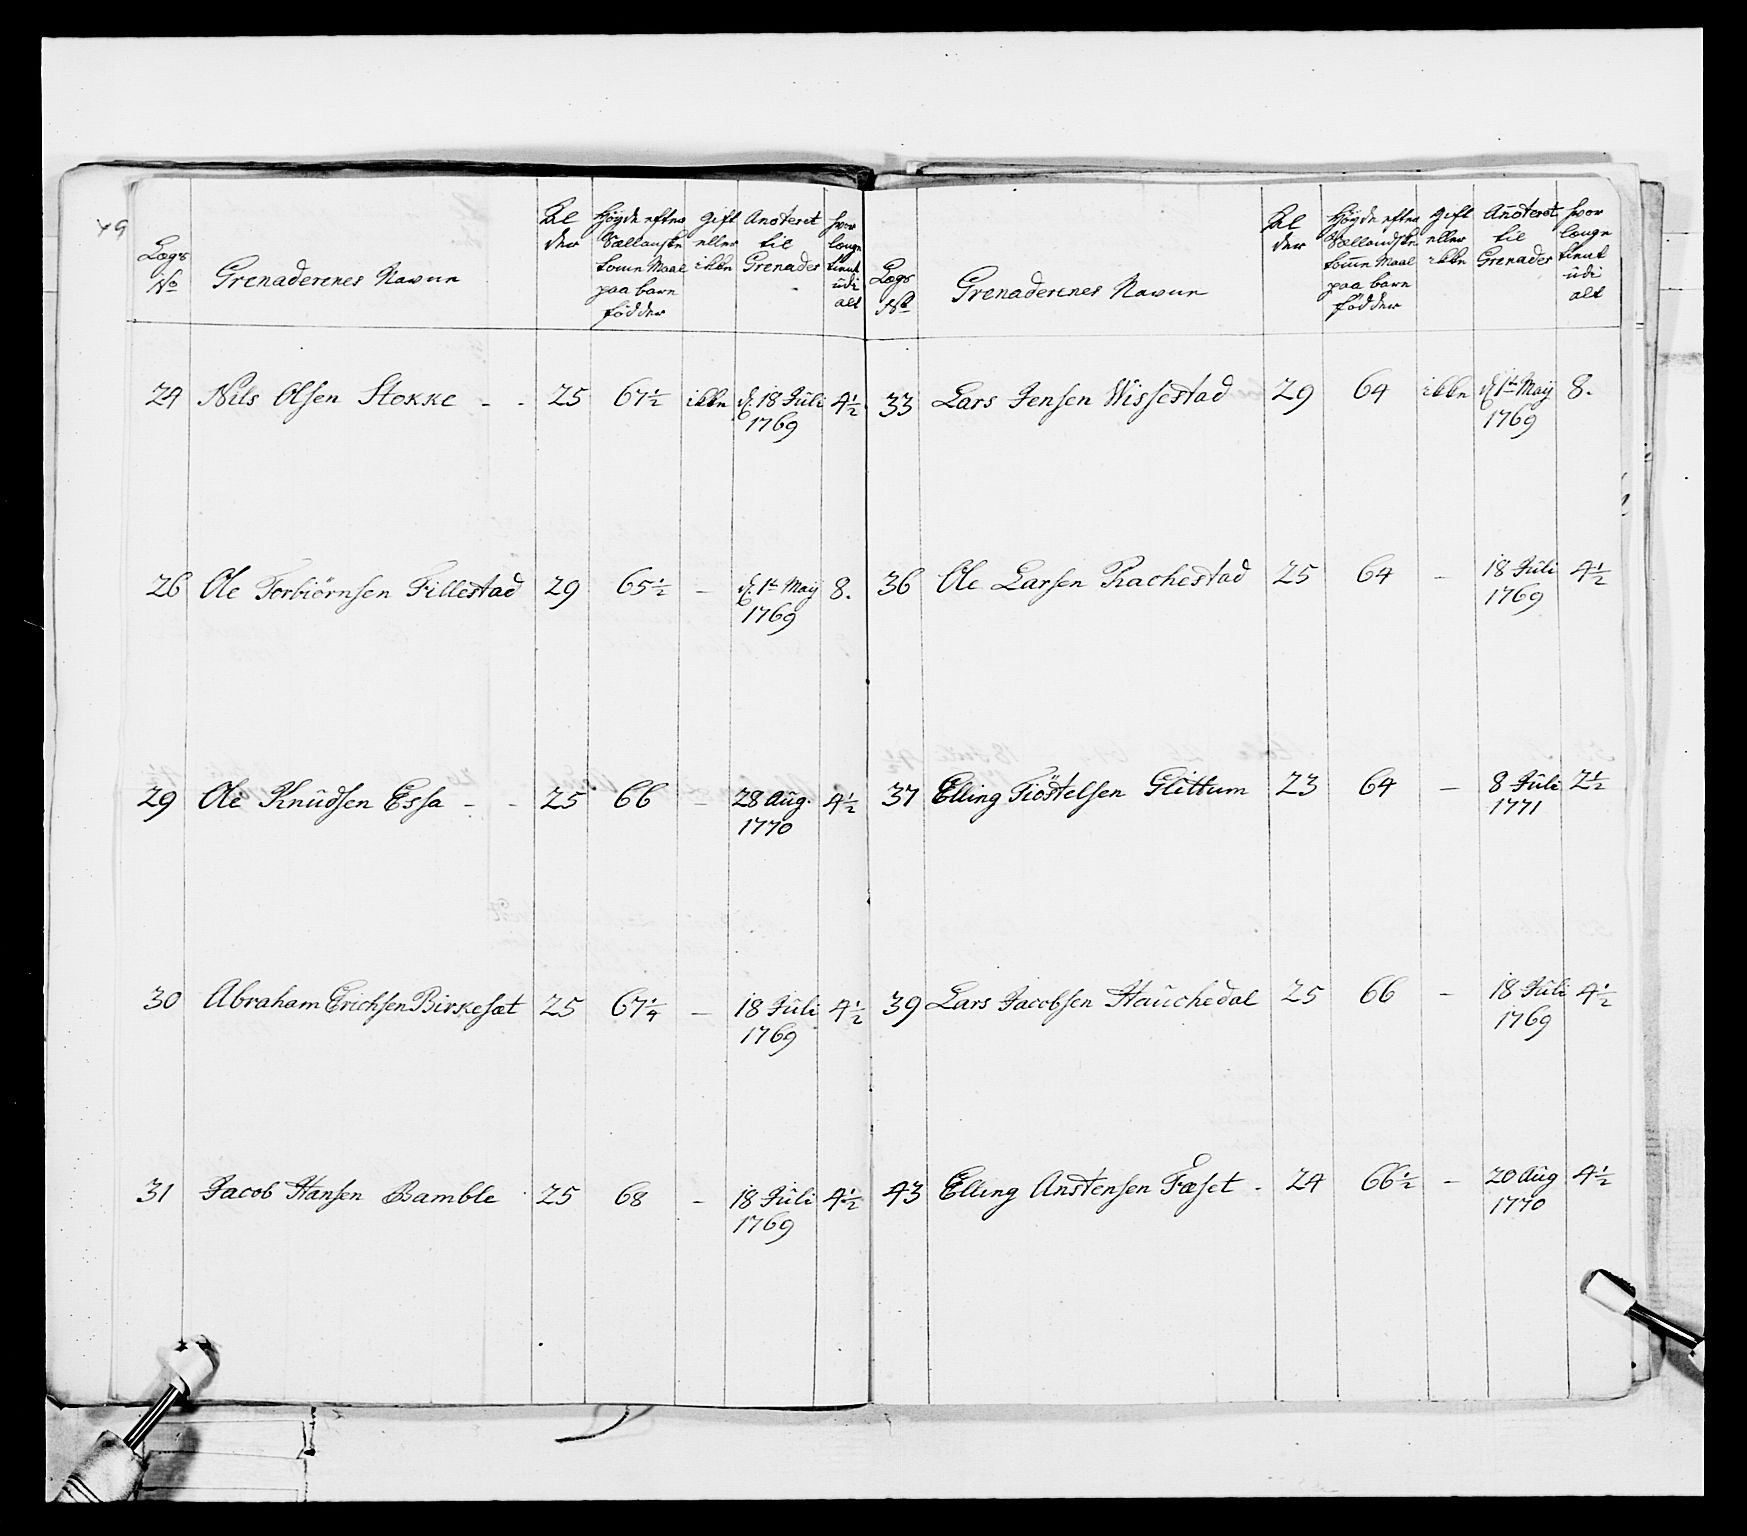 49
Lægs No
Grenaderenes Navne
Al der
Høyde efter Siællanske tomme Maal paa barn födder
gift eller ikke
Anoteret til Grenader
hvor længe tient udi alt
24 Nils Olsen Stokke - - 25 67½ ikke d: 18 Juli 1769 4½
26 Ole Torbiörnsen Fillestad 29 65½ - d: 1te Maij 1769 8.
29 Ole Knudsen Essa - - 25 66 - 28 Aug. 1770 4½
30 Abraham Erichsen Birkesæt 25 67¼ - 18 Juli 1769 4½
31 Jacob Hansen Bamble 25 68 - 18 Juli 1769 4½
Lægs No
Grenaderenes Navne
Al der
Høyde efter Siællandske tomme Maal paa barn födder
gift eller ikke
Anoteret til Grenader
hvor længe tient udi alt
33 Lars Jensen Wissestad 29 64 ikke d: 1te Maij 1769 8.
36 Ole Larsen Rachestad 25 64 - 18 Juli 1769 4½
37 Elling Tiöstelsen Glittum 23 64 - 8 Juli 1771 2½
39 Lars Jacobsen Hauchedal 25 66 - 18 Juli 1769 4½
43 Elling Anstensen Fæset - 24 66½ - 20 Aug 1770 4½